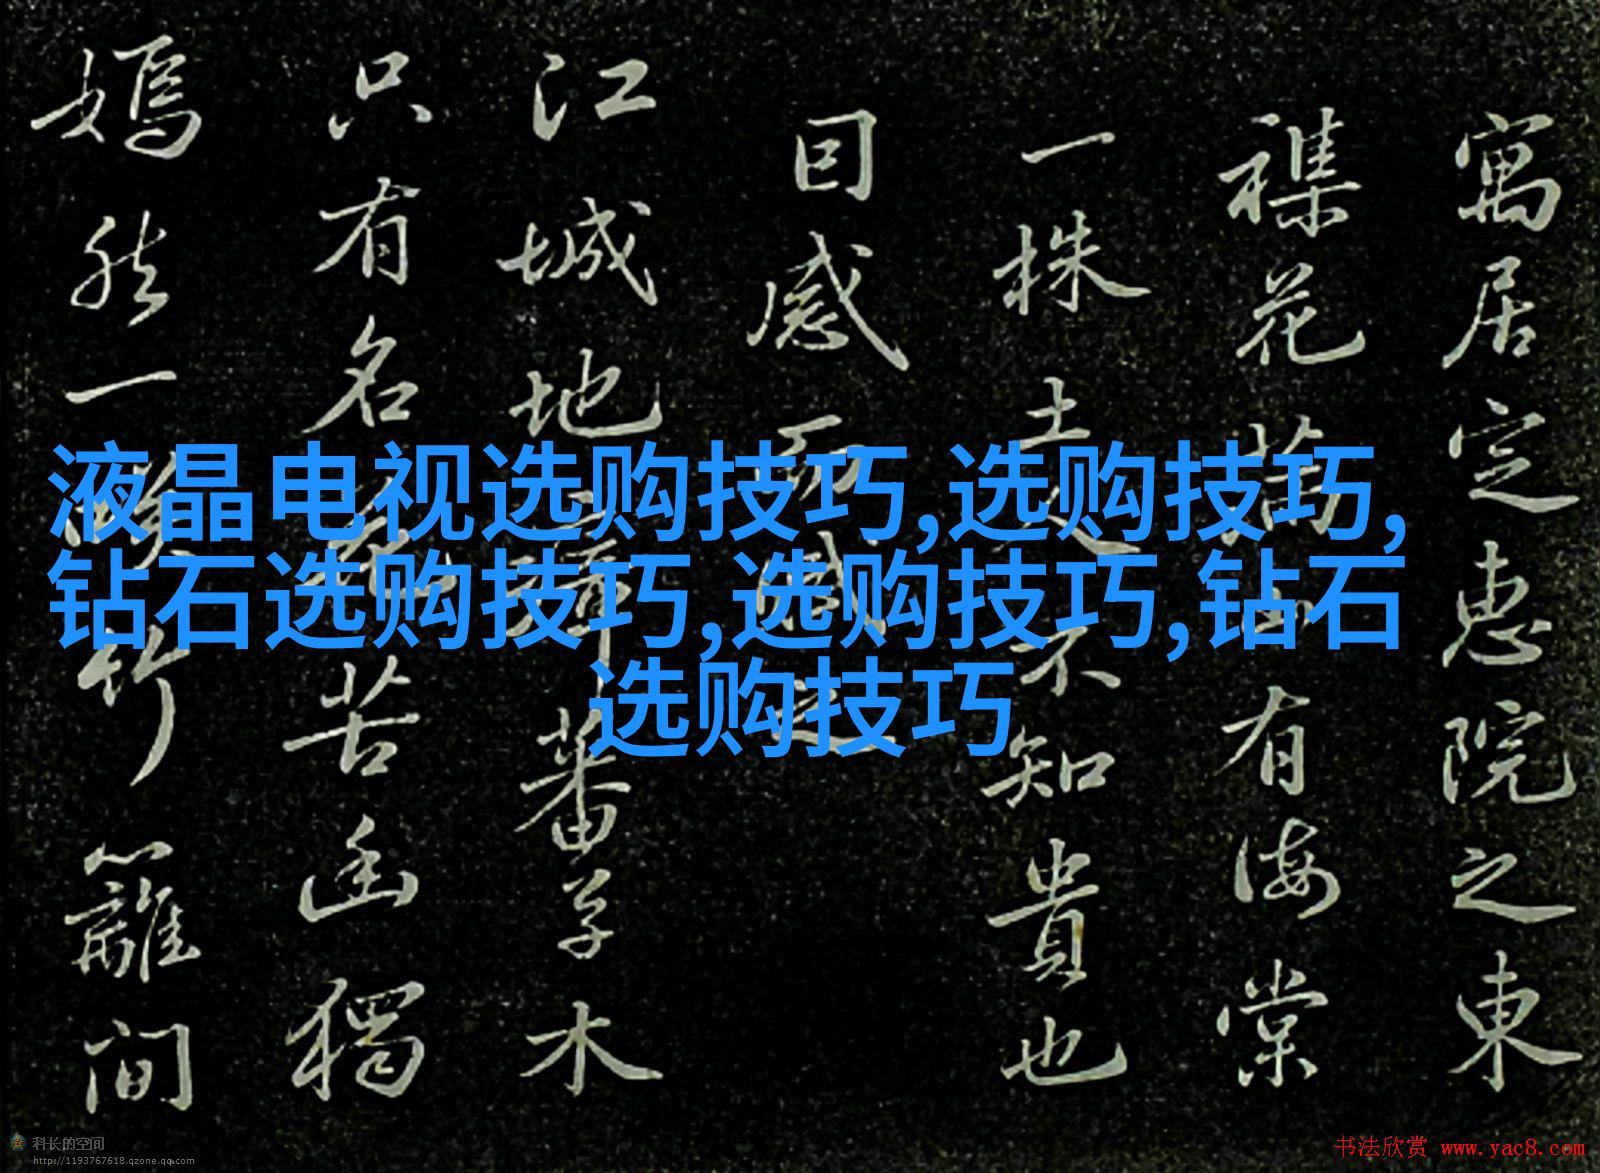 寓居定惠院之東
襍花滿山有海棠
一株土人不知貴也
江城地瘴蕃草木
只有名花苦幽獨
嫣然一笑竹籬間
液晶电视选购技巧,选购技巧,
钻石选购技巧,选购技巧,钻石
选购技巧
科长的空间
http://1193767618.qzone.qq.com
书法欣赏 www.yac8.com